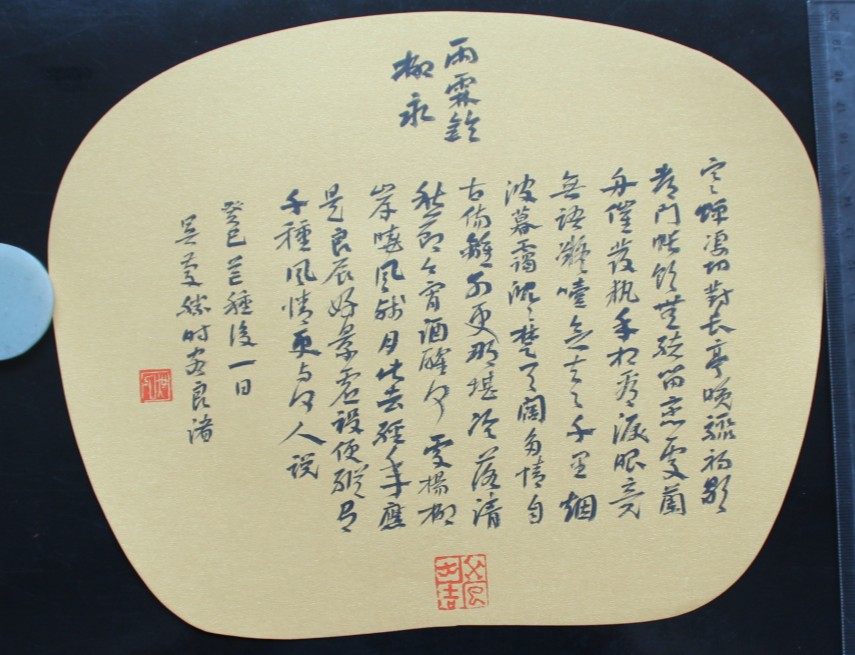 雨霖鈴
柳永
寒蟬凄切對長亭晚驟初歇
都門帳飲無緒留戀處蘭
舟催發執手相看淚眼竟
無語凝噎念去〻千里烟
波暮靄沉〻楚天闊多情自
古傷離別更那堪冷落清
秋節今宵酒醒何處楊柳
岸曉風殘月此去經年應
是良辰好景虛設便縱有
千種風情更與何人説
癸巳芒種後一日
吳時客良渚